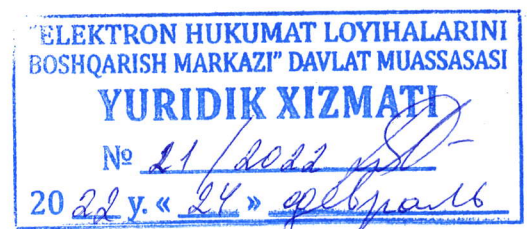 "ELEKTRON HUKUMAT LOYIHALARINI
BOSHQARISH MARKAZI" DAVLAT MUASSASASI
YURIDIK XIZMATI
№ 21/2022
20 22 y. « 24 » февраль